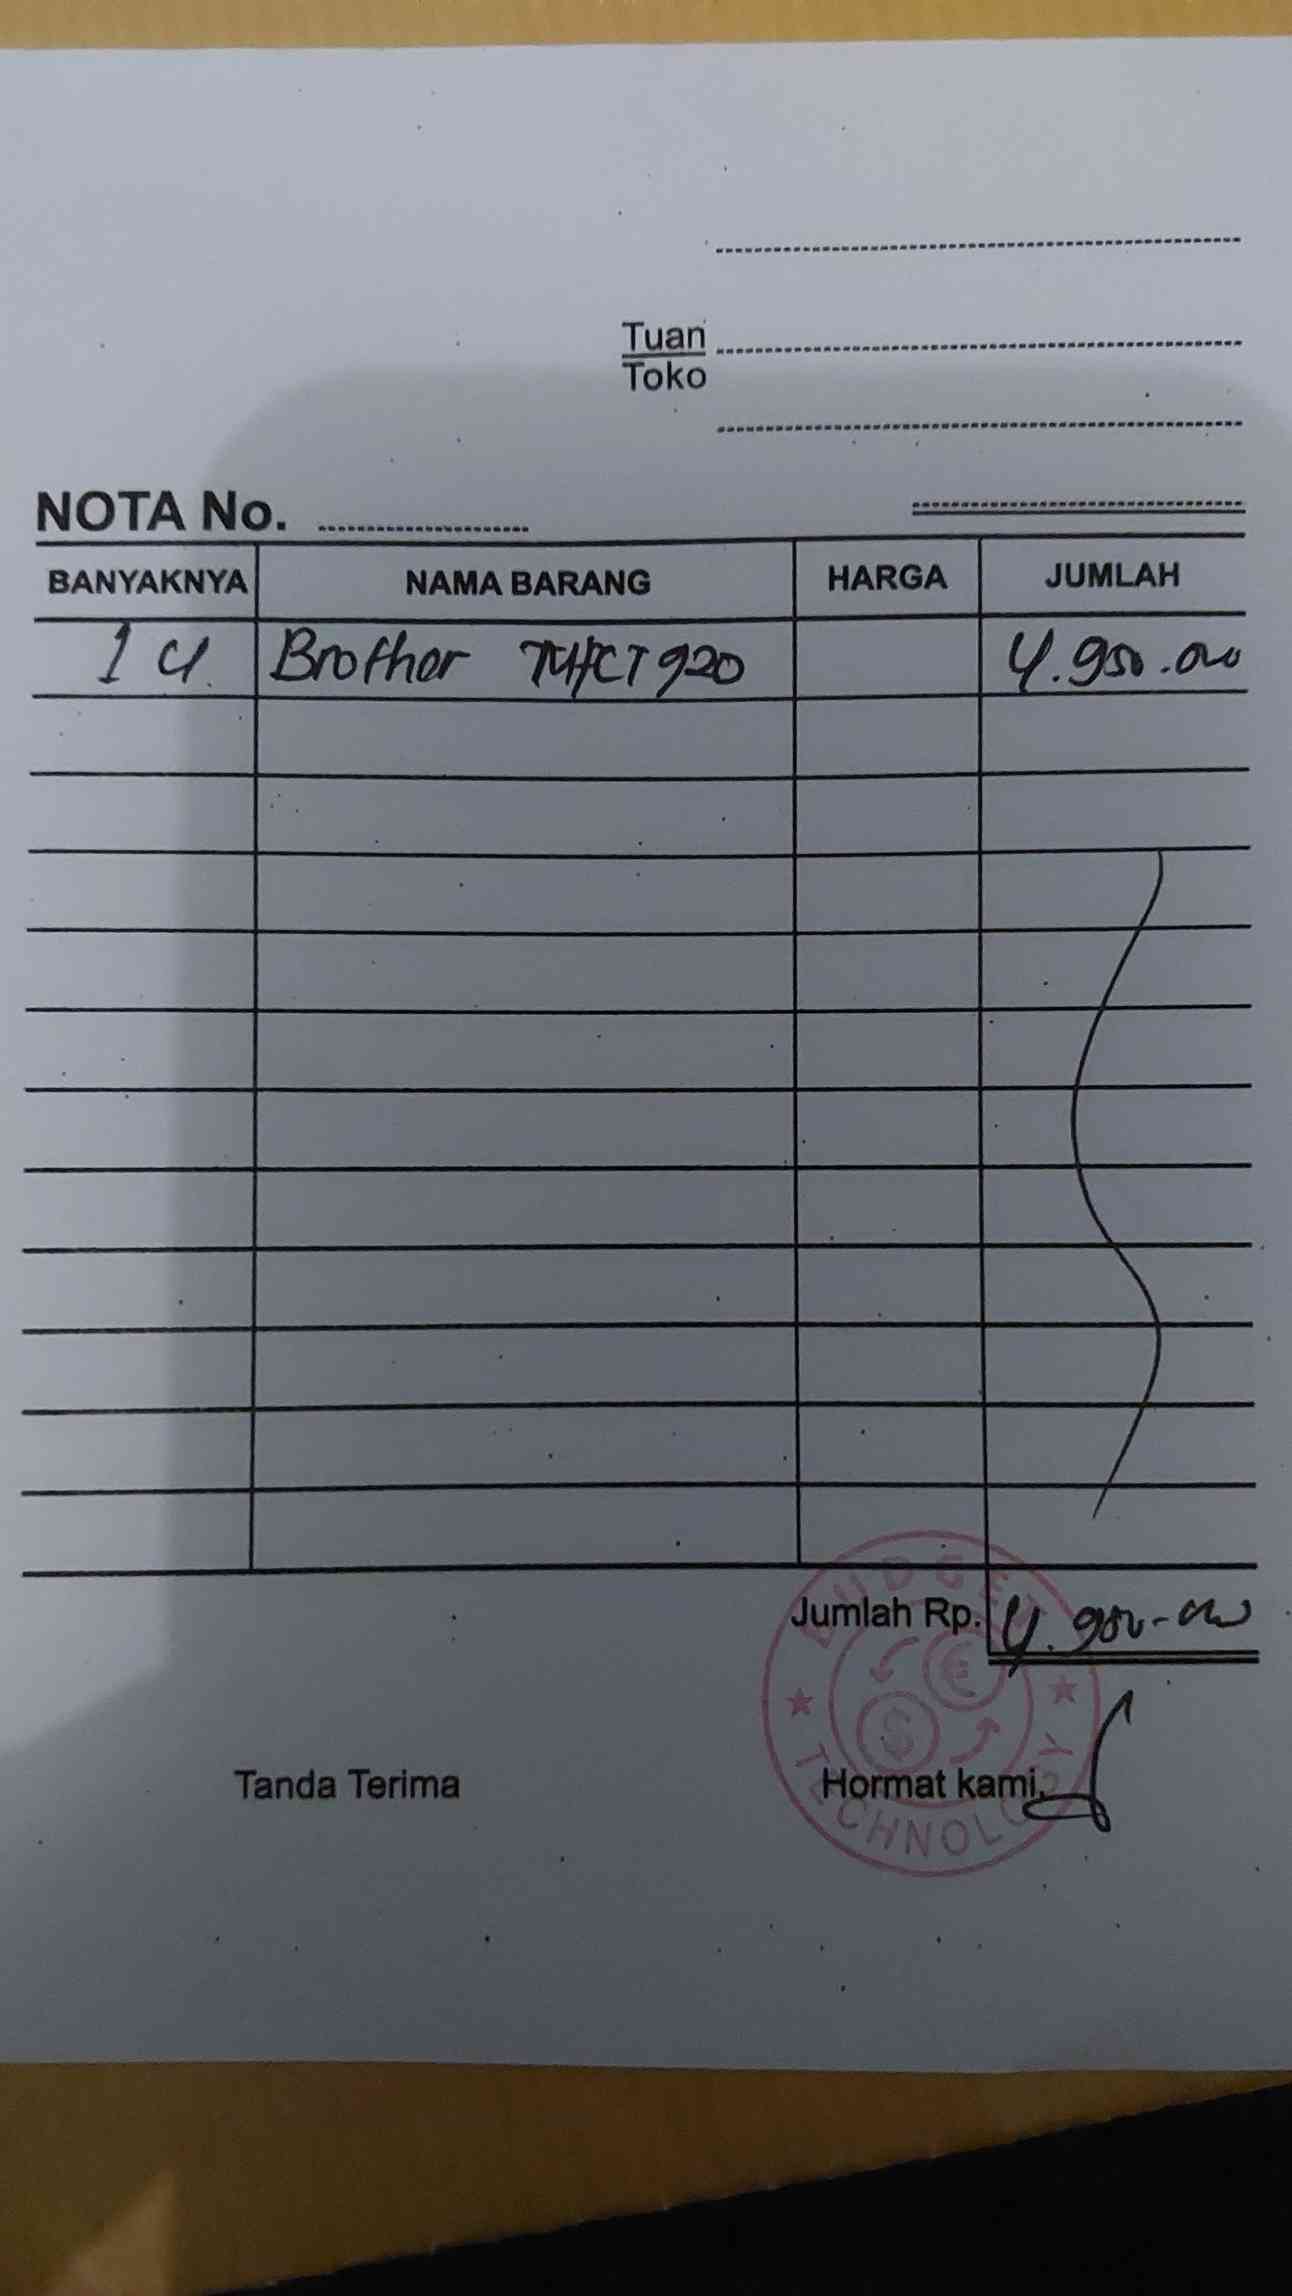 Tuan
Toko
NOTA No.
BANYAKNYA NAMA BARANG HARGA JUMLAH
1 U. Brother 920 4.950.000
Jumlah Rp. 4.950-000
BUDGET
€
$
TECHNOLOGY
Tanda Terima Hormat kami,